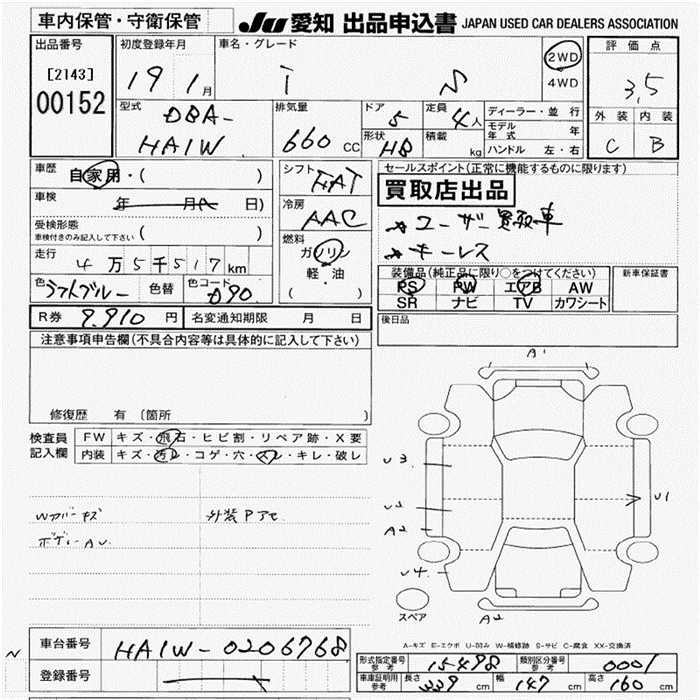 車内保管・守衛保管
JU 愛知 出品申込書 JAPAN USED CAR DEALERS ASSOCIATION
出品番号 [2143] 00152
初度登録年月 19 1月
車名・グレード i S
2WD
4WD
評価点 3.5
外装 内装
C B
型式 DBA-
HA1W
排気量 660 CC
ドア 5
形状 HB
定員 4人
積載 kg
ディーラー・並行
モデル年式 年
ハンドル 左・右
車歴 自家用・( )
車検 年 月 日)
受検形態
車検付きのみ記入して下さい ( )
走行 4万5千517km
色 ライトブルー 色替 色コード D90
シフト FAT
冷房 AAC
燃料 ガソリン
軽・油
( )
セールスポイント(正常に機能するものに限ります)
買取店出品
ユーザー買取車
キーレス
装備品(純正品に限り○をつけてください)
PS PW エアB AW
SR ナビ TV カワシート
新車保証書
後日品
R券 9.910 円 名変通知期限 月 日
注意事項申告欄(不具合内容等は具体的に記入して下さい)
修復歴 有 (箇所
検査員記入欄
FW キズ・飛石・ヒビ割・リペア跡・X要
内装 キズ・汚レ・コゲ・穴・スレ・キレ・破レ
Wカバーキズ
ボディーAU
外装Pアセ
A1
U3
U2
A2
U4
U1
A2
スペア
A-キズ E-エクボ U-凹み W-補修跡 S-サビ C-腐食 XX-交換済
車台番号 HA1W-0206768
登録番号
形式指定番号 参考 15498 類別区分番号 参考 0001
車庫証明用 参考 長さ 339 cm 幅 147 cm 高さ 160 cm